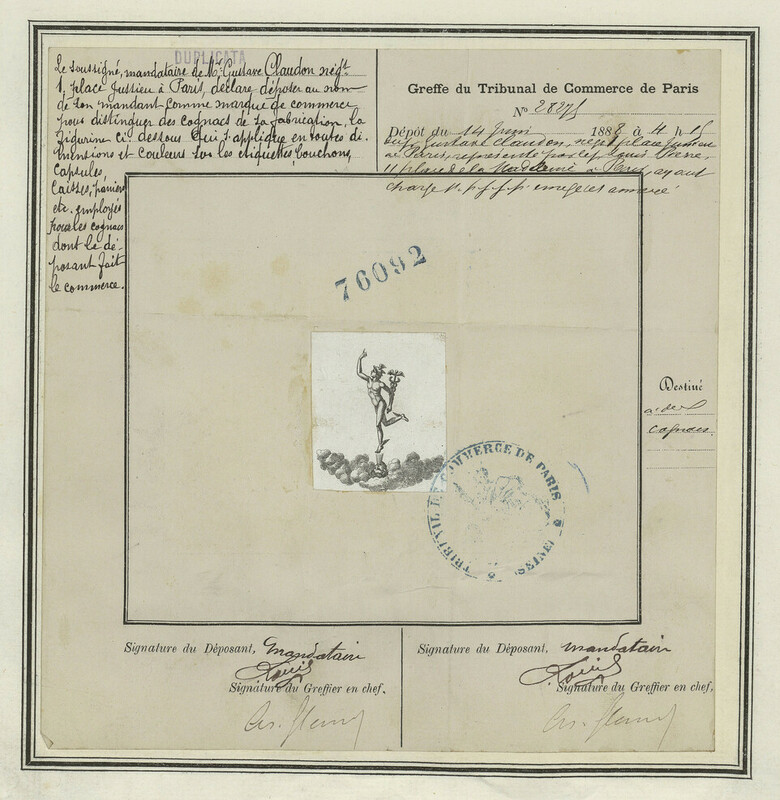 DUPLICATA
Le soussigné, mandataire de Mr Gustave Claudon négt
1, place Jussieu à Paris, déclare déposer au nom
de son mandant comme marque de commerce
pour distinguer des cognacs de sa fabrication, la
figurine ci-dessous qui s'applique en toutes di-
mensions et couleurs sur les étiquettes, bouchons,
capsules,
caisses, paniers
etc. employés
pour les cognacs
dont le dé-
posant fait
le commerce.
Greffe du Tribunal de Commerce de Paris
No 28275
Dépôt du 14 Juin 1888 à 4 h 15
Gustave Claudon, négt place Jussieu
à Paris, représenté par
11 place de la Madeleine à Paris, ayant
charge
76092
Destiné
à des
cognacs.
TRIBUNAL DE COMMERCE DE PARIS (SEINE)
Signature du Déposant, mandataire
Louis
Signature du Greffier en chef,
Signature du Déposant, mandataire
Louis
Signature du Greffier en chef,